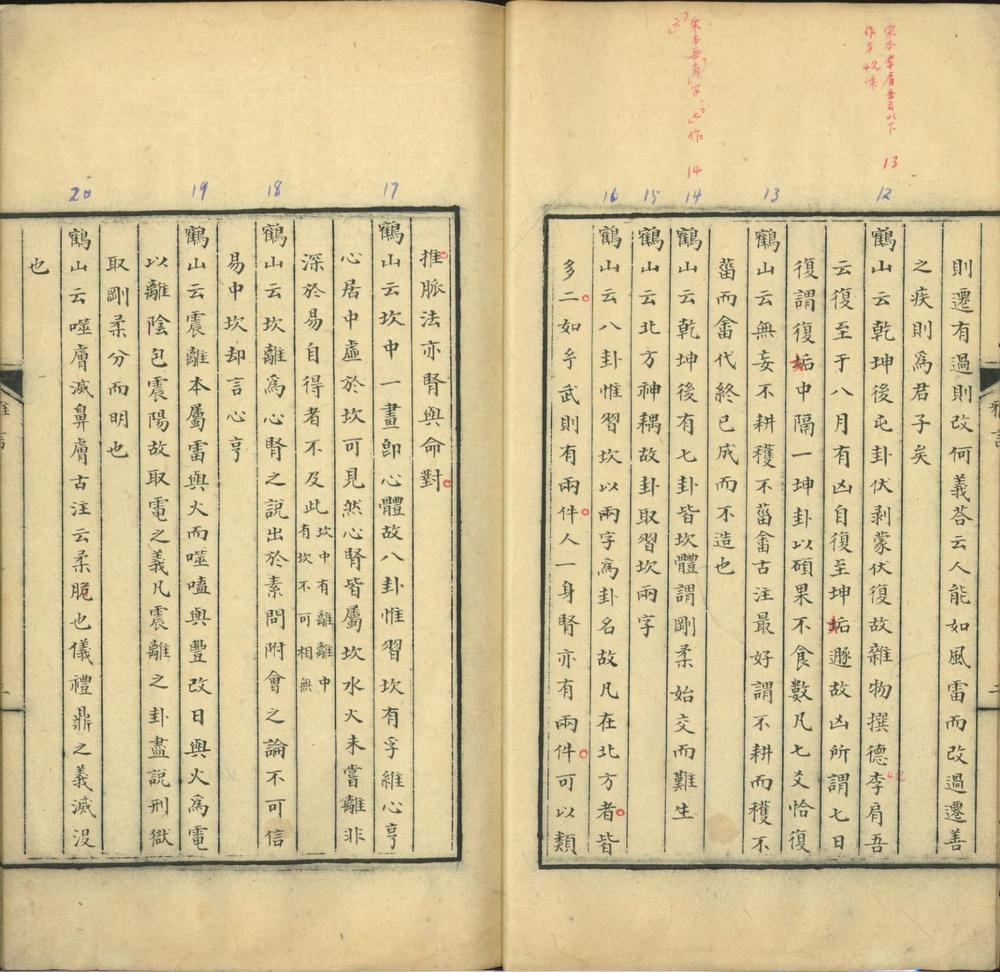 宋本李肩吾云以下
作另42條
13
宋本無有字
14
12
13
14
15
16
則遷有過則改何義荅云人能如風雷而改過遷善
之疾則爲君子矣
鶴山云乾坤後屯卦伏剥蒙伏復故雜物撰德李肩吾
42
云復至于八月有凶自復至坤垢遯故凶所謂七日
復謂復垢中隔一坤卦以碩果不食數凡七爻恰復
鶴山云無妄不耕穫不菑畬古注最好謂不耕而穫不
菑而畬代終已成而不造也
鶴山云乾坤後有七卦皆坎體謂剛柔始交而難生
鶴山云北方神耦故卦取習坎兩字
鶴山云八卦惟習坎以兩字爲卦名故凡在北方者皆
多二如乎武則有兩件人一身腎亦有兩件可以類
17
18
19
20
推脈法亦腎與命對
鶴山云坎中一畫卽心體故八卦惟習坎有孚維心亨
心居中虛於坎可見然心腎皆屬坎水火未嘗離非
深於易自得者不及此坎中有離離中
有坎不可相無
鶴山云坎離爲心腎之說出於素問附會之論不可信
易中坎却言心亨
鶴山云震離本屬雷與火而噬嗑與豐改日與火爲電
以離陰包震陽故取電之義凡震離之卦盡說刑獄
取剛柔分而明也
鶴山云噬膚滅鼻膚古注云柔脆也儀禮鼎之義滅没
也